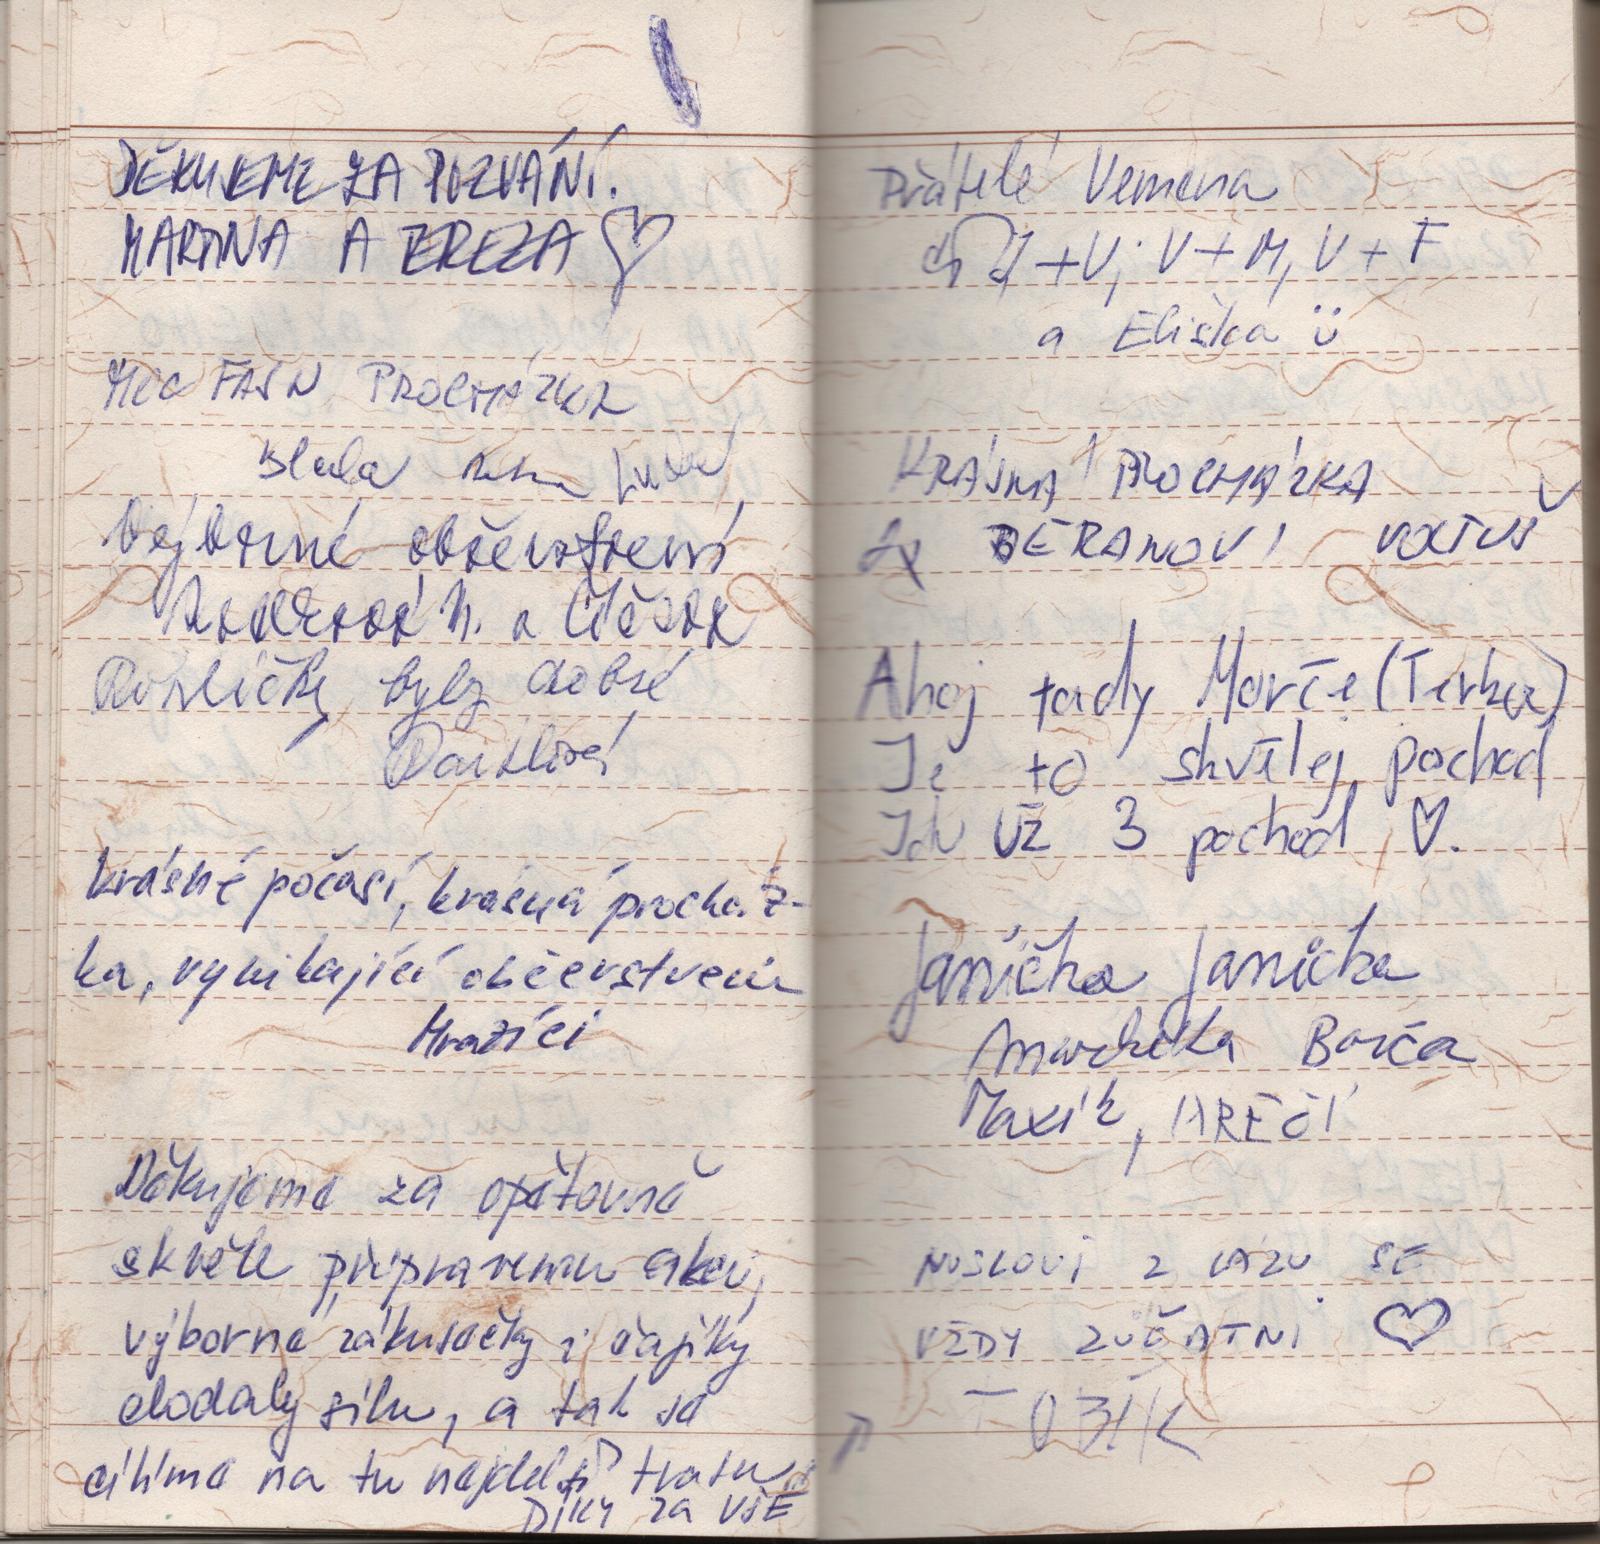 DĚKUJEME ZA POZVÁNÍ.
MARTINA A TEREZA
MEC FAJN PROCHÁZKA
Výborné občerstvení
N. a
byly dobré
krásné počasí, krásná procház-
ka, vynikající občerstvení
Mrazíci
Děkujeme za opětovně
skvěle připravenou akci,
výborné zákusečky i čajíky
dodaly sílu, a tak se
cítíme na tu nejdelší trasu
DÍKY ZA VŠE
Přátelé Vemena
J+V, V+M, V+F
a Eliška ü
KRÁSNÁ PROCHÁZKA
BERANOVI
Ahoj tady Morče (Terka)
Je to skvělej pochod
Jdu UŽ 3 pochod ♡.
Janička Janička
Barča
Maxík, AREČÍ
Z LAZU SE
VŽDY ZÚČATNÍ ♡
TOBÍK